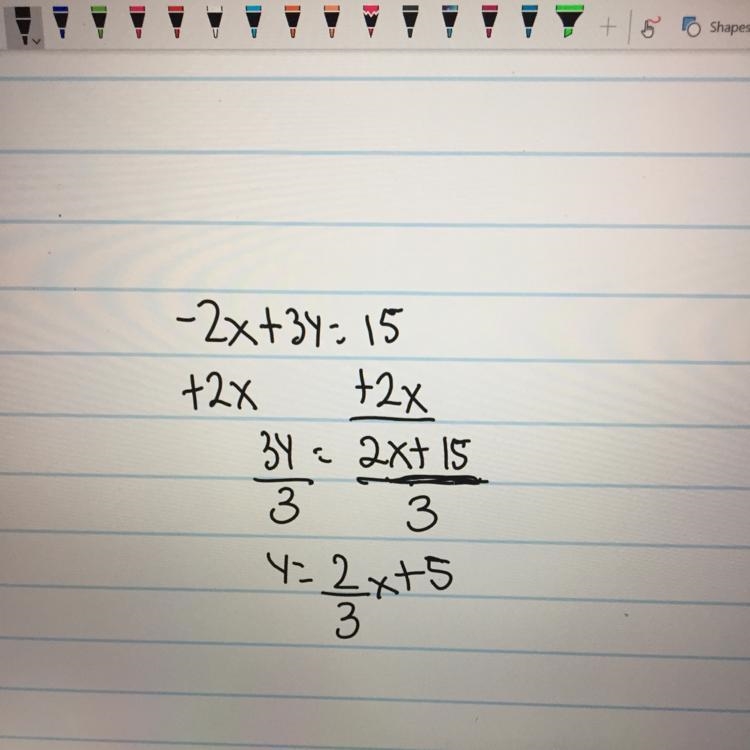 Shapes
-2x+3y=15
+2x +2x
3y = 2x+15
3 3
y=2/3x+5